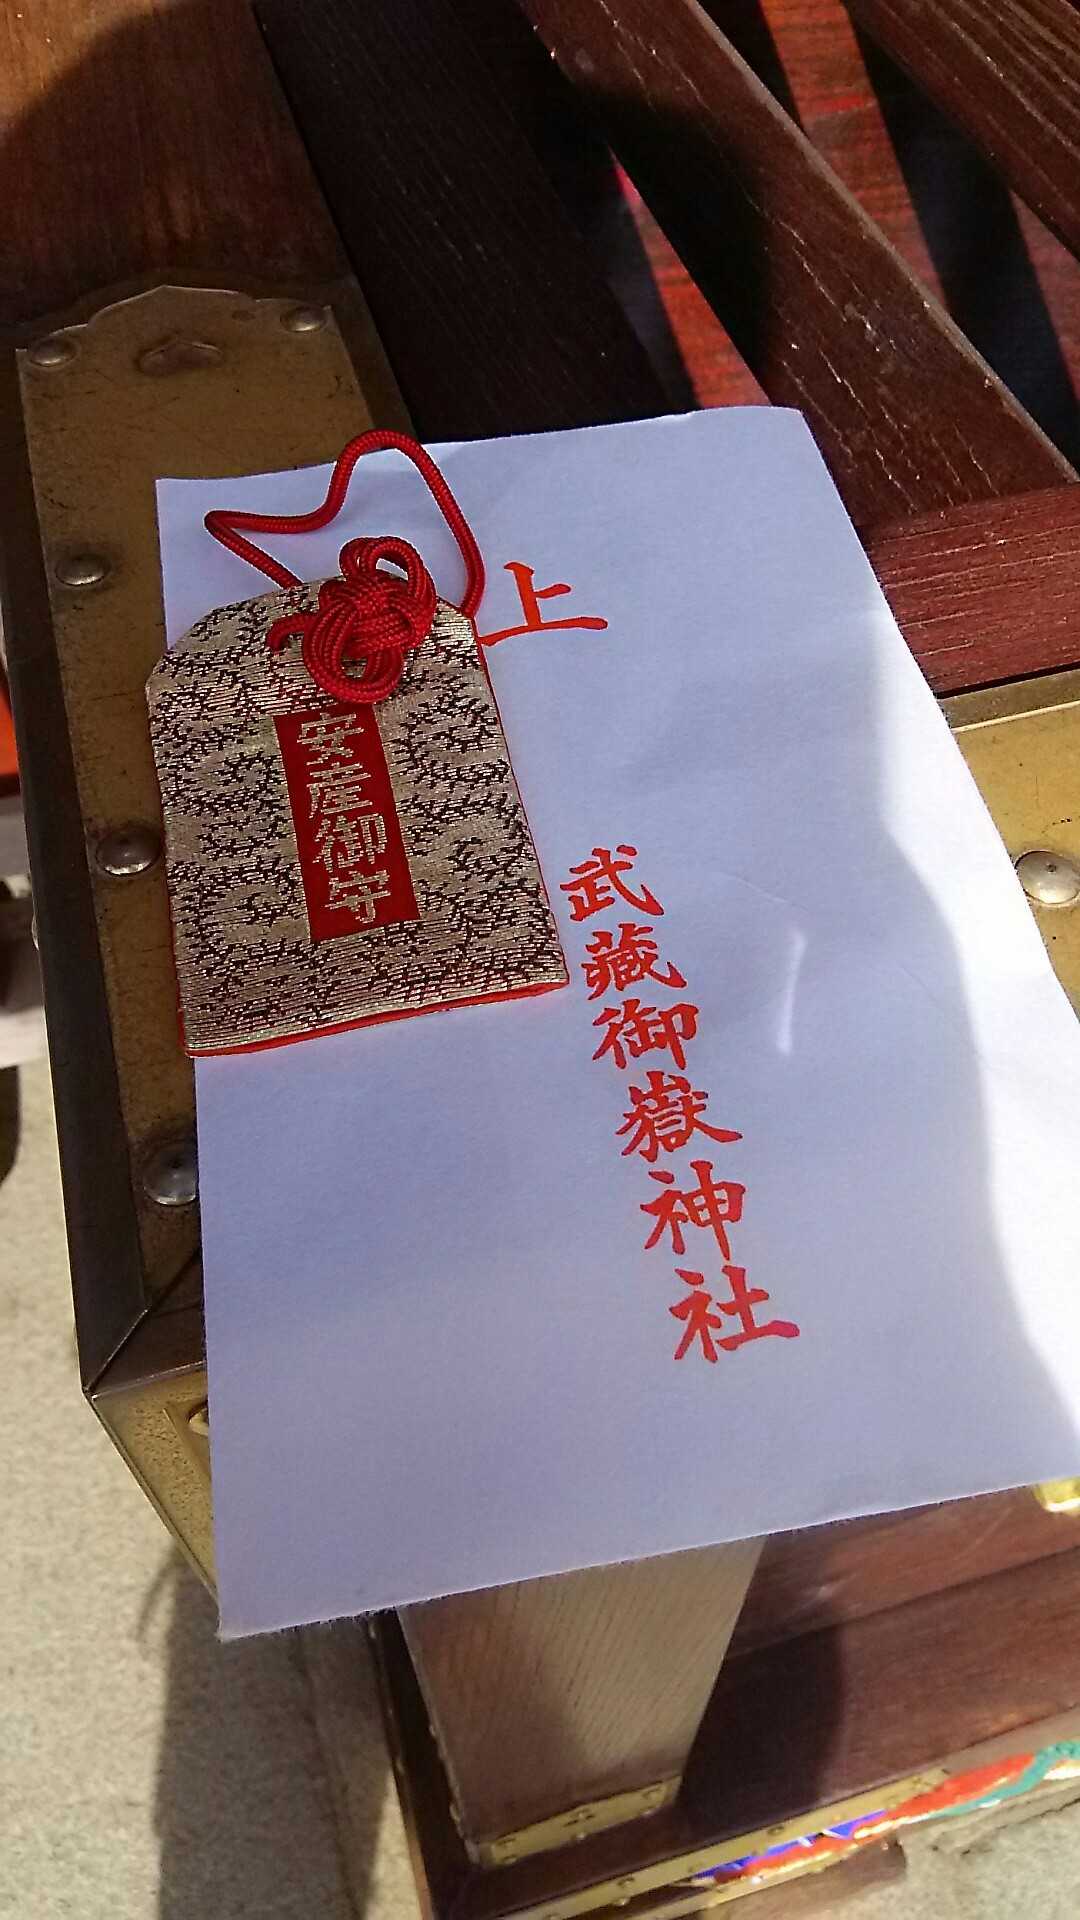 上
武藏御嶽神社
安産御守